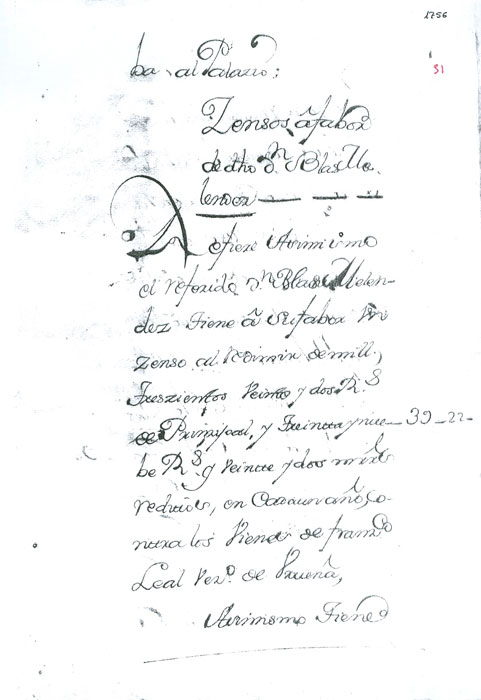 1756
31
ba al Palazio;
Zensos â fabor
de dho Dn Blas Me
lendez
Refiere Asimismo
el referido Dn Blas Melen-
dez tiene â su fabor Un
Zenso al Redimir de mill,
treszientos Veinte y dos Rs
de Prinzipal, y treinta y nue- 39-22-
be Rs y Veinte y dos mrs
reditos, en cada un año, co-
ntra los Vienes de franco
Leal Vezo de
Asimismo tiene